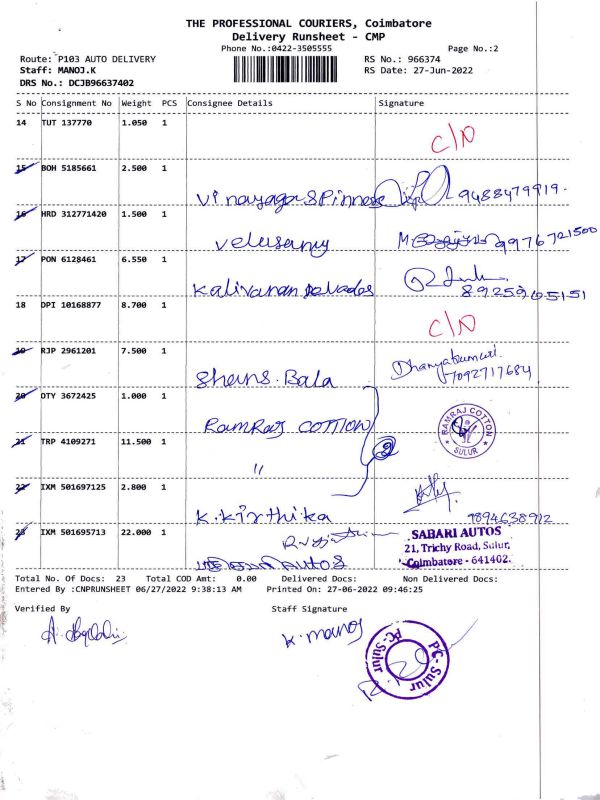 THE PROFESSIONAL COURIERS, Coimbatore
Delivery Runsheet - CMP
Phone No.:0422-3505555 Page No.:2
Route: P103 AUTO DELIVERY RS No.: 966374
Staff: MANOJ.K RS Date: 27-Jun-2022
DRS No.: DCJB96637402
S No Consignment No Weight PCS Consignee Details Signature
14 TUT 137770 1.050 1
C/N
15 BOH 5185661 2.500 1
Vinayaga Spinners 9488479919.
16 HRD 312771420 1.500 1
Velusamy 9976721500
17 PON 6128461 6.550 1
Kalivanan 8925965151
18 DPI 10168877 8.700 1
C/N
19 RJP 2961201 7.500 1
Shens. Bala Dhanyakumari
7092717684
20 OTY 3672425 1.000 1
RamRaj COTTION RAMRAJ COTTON SULUR
21 TRP 4109271 11.500 1
" 2
22 IXM 501697125 2.800 1
K. Kirthika 9894638912
23 IXM 501695713 22.000 1
SABARI AUTOS
21, Trichy Road, Sulur,
Autos Coimbatore - 641402.
Total No. Of Docs: 23 Total COD Amt: 0.00 Delivered Docs: Non Delivered Docs:
Entered By :CNPRUNSHEET 06/27/2022 9:38:13 AM Printed On: 27-06-2022 09:46:25
Verified By Staff Signature
K. Manoj
PC-Sulur PC-Sulur